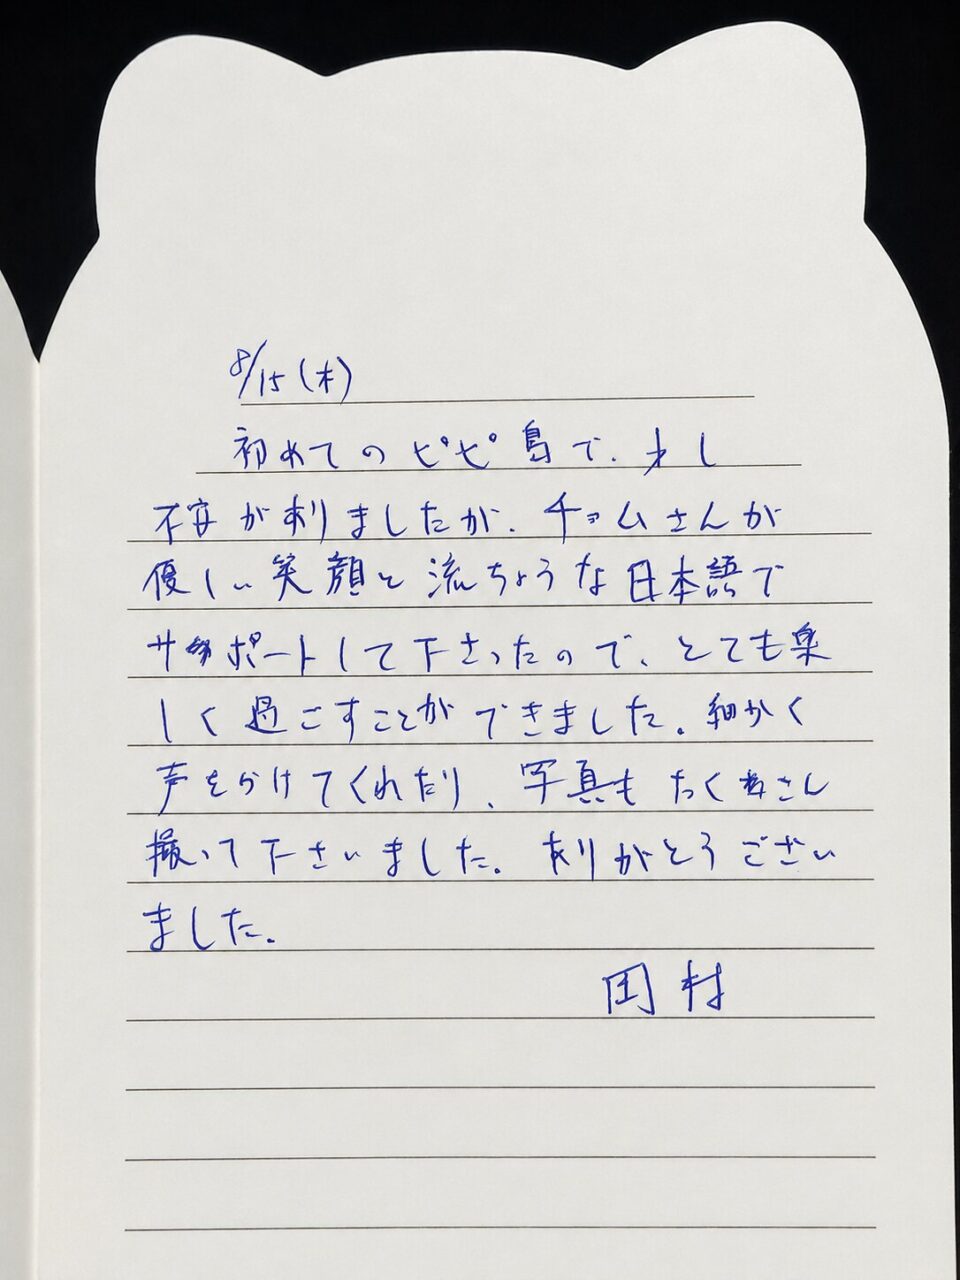 8/15(木)
初めてのピピ島で、少し
不安がありましたが、チョムさんが
優しい笑顔と流ちょうな日本語で
サポートして下さったので、とても楽
しく過ごすことができました。細かく
声をかけてくれたり、写真もたくさん
撮って下さいました。ありがとうござい
ました。
岡村